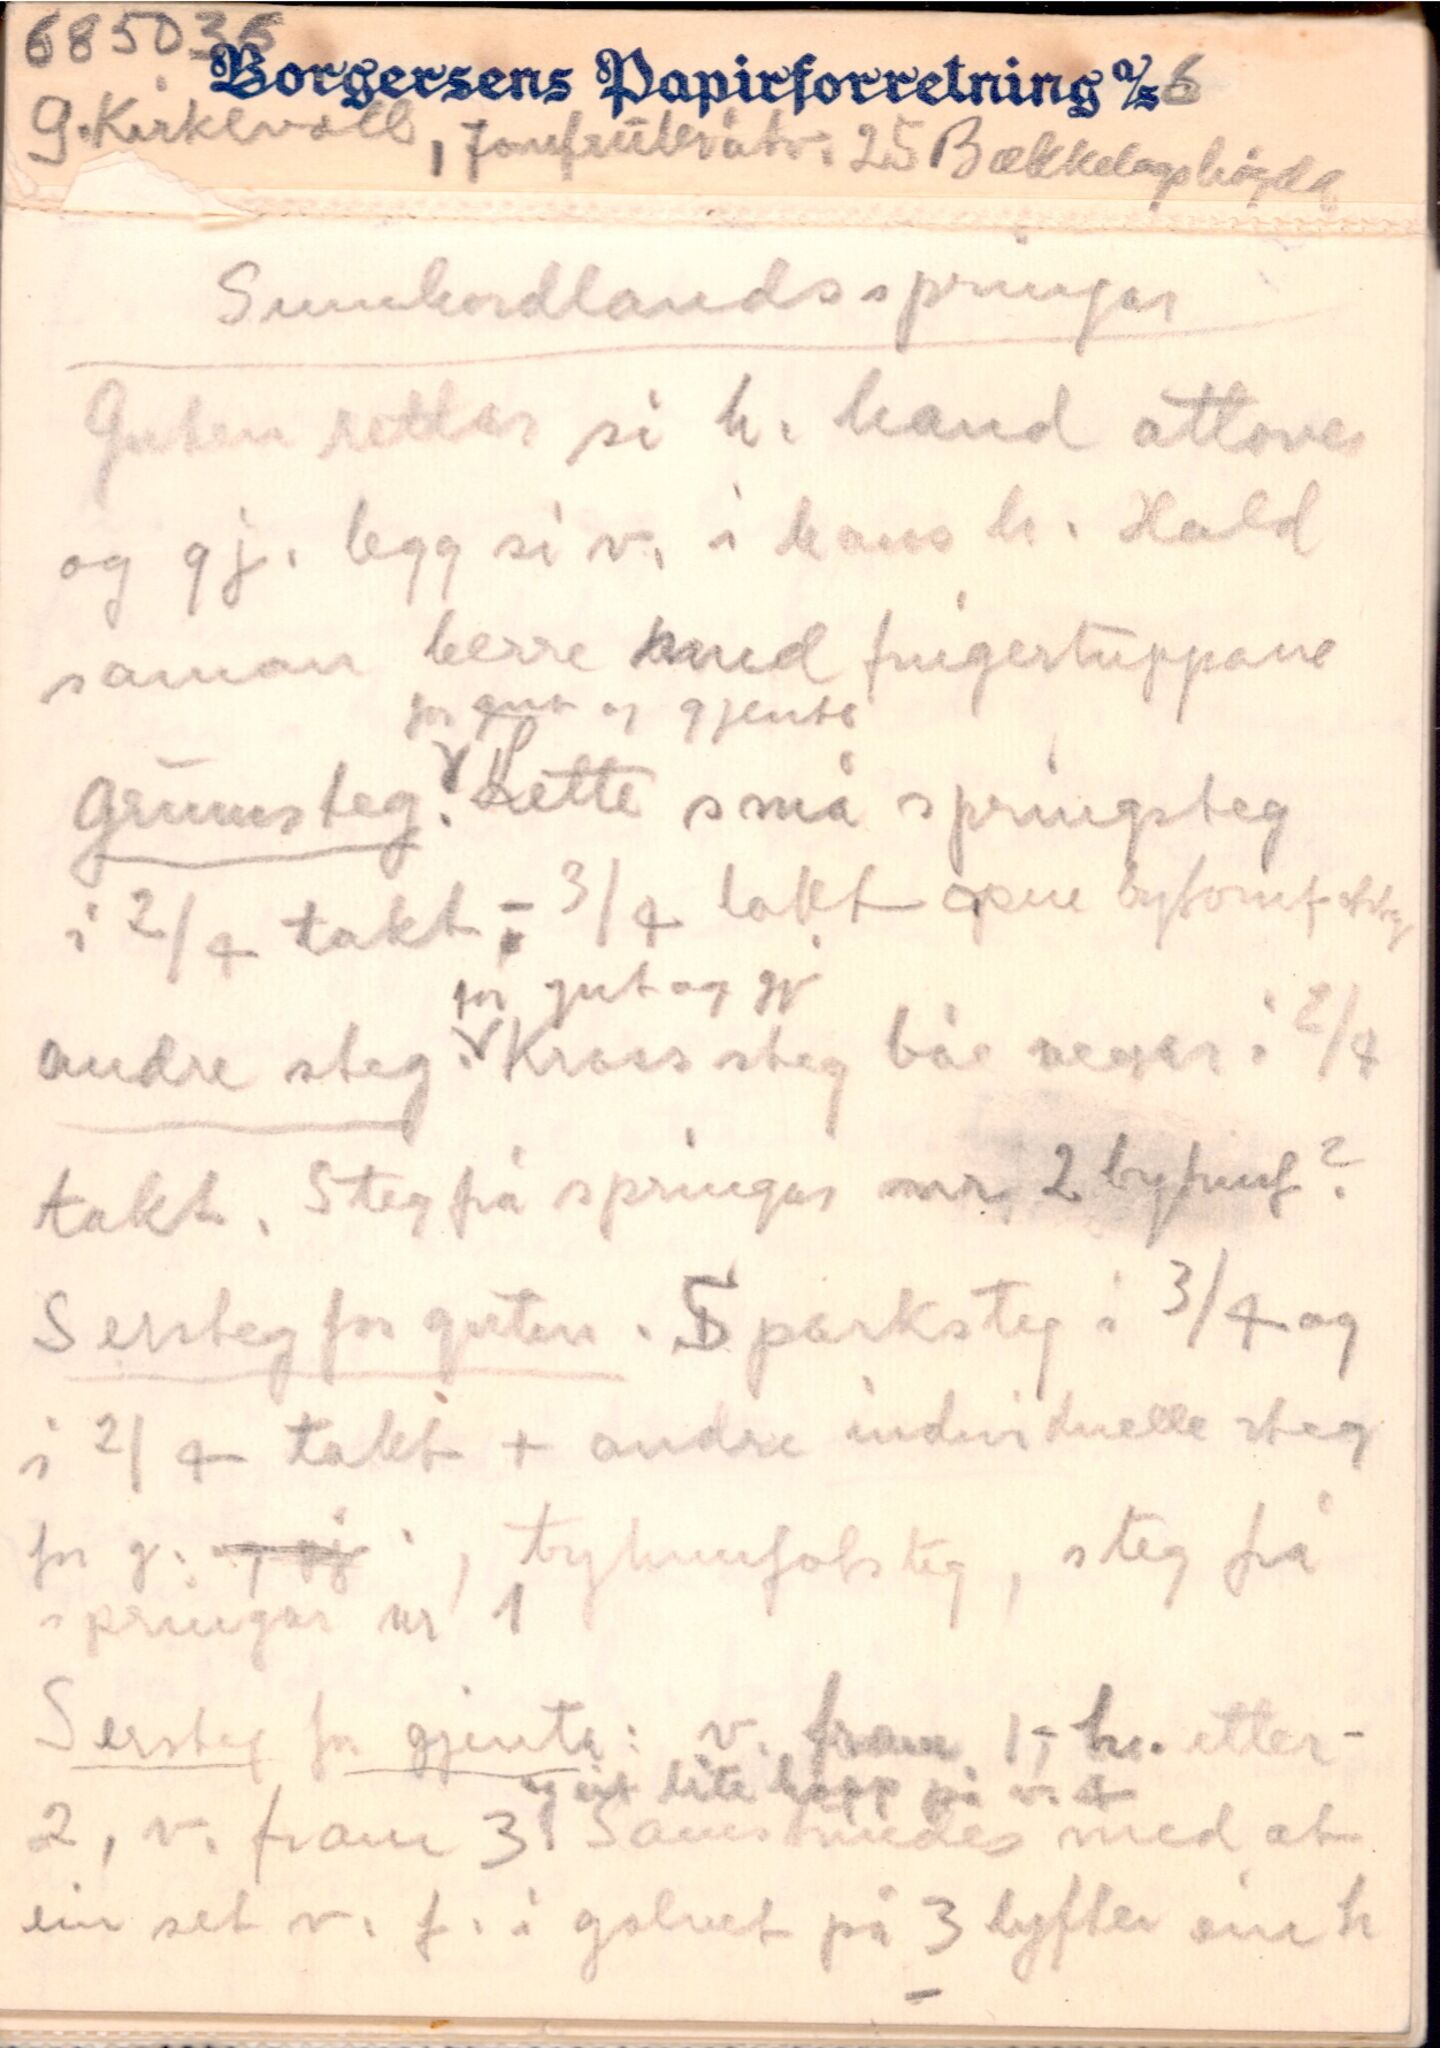 685036
Borgersens Papirforretning A/S 6
G. Kirkevoll, 25 Bækkelagshögda
Sunnhordlandsspringar
Guten rettar si h. hand attover
og gj. legg si v. i hans h. Hald
saman berre med fingertuppane
for gut og gjente
Grunnsteg: Lette små springsteg
i 2/4 takt; 3/4 takt
for gut og gj
andre steg. Kross steg båe vegar i 2/4
takt. Steg frå springar nr 2
Sersteg for guten. Sparksteg i 3/4 og
i 2/4 takt + andre individuelle steg
for g. og gj, tyhumfotsteg, steg frå
springar nr 1
Sersteg for gjenta: v. fram 1, h. etter-
og eit lite hopp på v. 4
2, v. fram 3. med at
ein set v. f. i golvet på 3 lyfter ein h